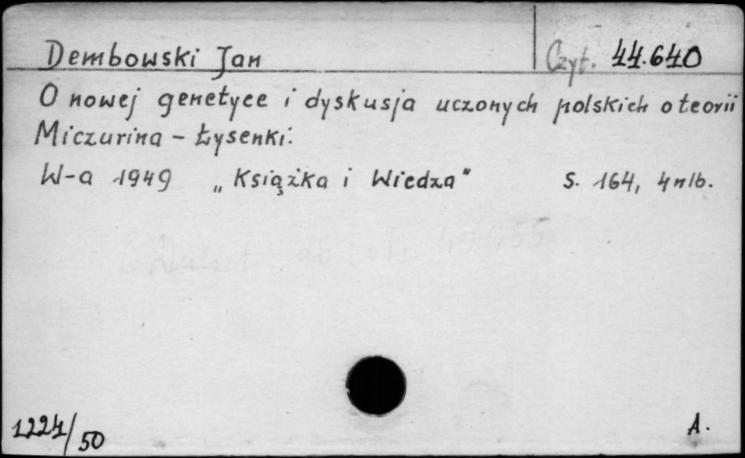 Dembowski Jan
Czyt. 44.640
O nowej genetyce i dyskusja uczonych polskich o teorii
Miczurina - Łysenki.
W-a 1949 „Książka i Wiedza" S. 164, 4 nlb.
1224/50
A.